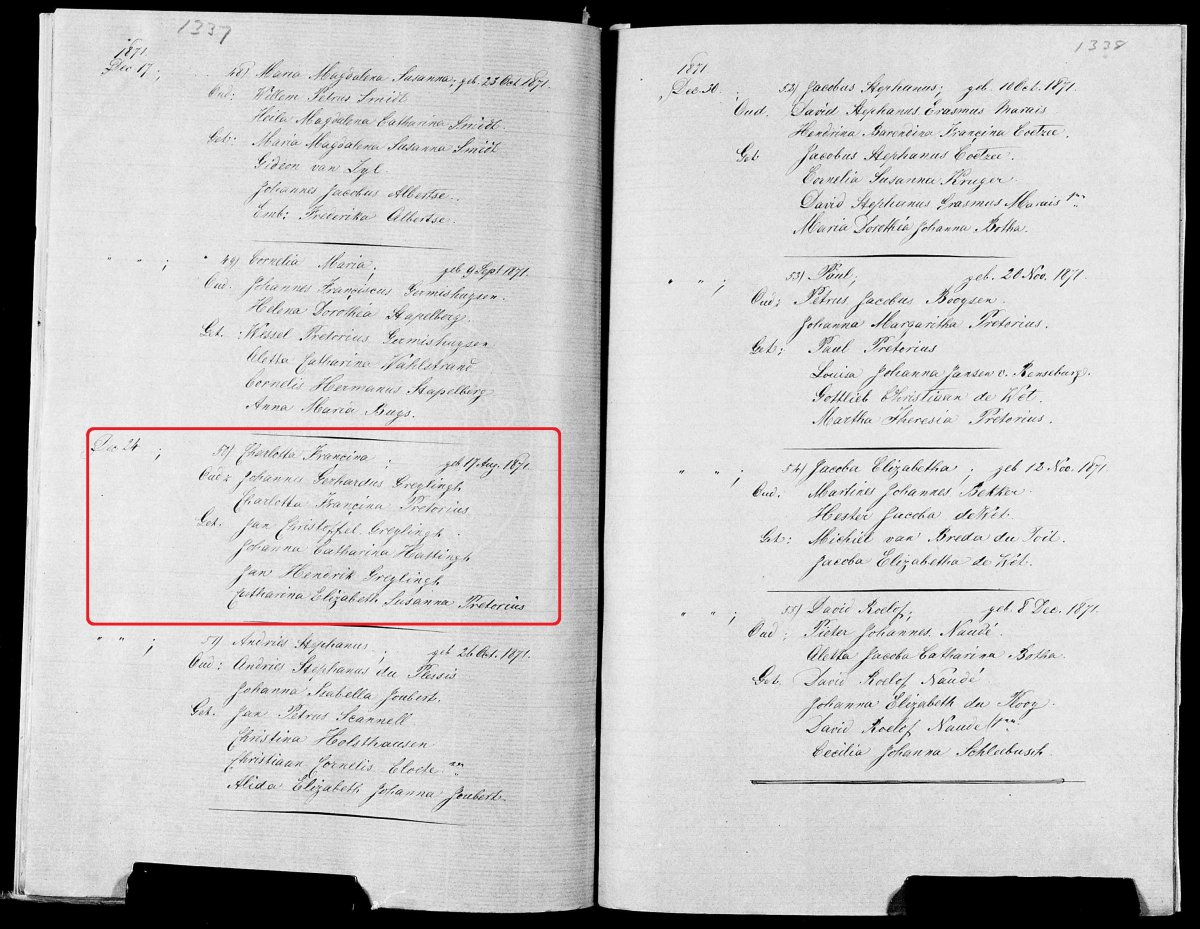 1337
1871.
Dec 17; 48) Maria Magdalena Susanna; geb. 23 Oct 1871.
Oud: Willem Petrus Smidt
Heila Magdalena Catharina Smidt.
Get: Maria Magdalena Susanna Smidt
Gideon van Zyl.
Johannes Jacobus Albertse.
Emb: Frederika Albertse.
" " ; " 49) Cornelia Maria; geb 9 Sept 1871.
Oud. Johannes Franciscus Germishuysen.
Helena Dorothea Stapelberg.
Get. Wessel Pretorius Germishuysen
Aletta Catharina Wahlstrand
Cornelis Hermanus Stapelberg
Anna Maria Buys.
Dec 24 ; 50) Charlotta Francina ; geb 17 Aug. 1871.
Oud: Johannes Gerhardus Greylingh
Charlotta Francina Pretorius
Get. Jan Christoffel Greylingh.
Johanna Catharina Hattingh
Jan Hendrik Greylingh
Catharina Elizabeth Susanna Pretorius
" " ; 51) Andries Stephanus ; geb 26 Oct. 1871.
Oud: Andries Stephanus du Plessis
Johanna Isabella Joubert.
Get. Jan Petrus Scannell
Christina Holsthausen
Christiaan Cornelis Cloete
Alida Elizabeth Johanna Joubert.
1338
1871
Dec. 30 ; 52) Jacobus Stephanus; geb. 10 Oct. 1871.
Oud. David Stephanus Erasmus Marais
Hendrina Barendina Francina Coetzee.
Get Jacobus Stephanus Coetzee.
Cornelia Susanna Kruger
David Stephanus Erasmus Marais
Maria Dorothea Johanna Botha.
" " ; 53) Paul; geb. 20 Nov. 1871
Oud: Petrus Jacobus Booysen.
Johanna Margaritha Pretorius.
Get: Paul Pretorius
Louisa Johanna Jansen v. Rensburg.
Gottlieb Christiaan de Wet.
Martha Theresia Pretorius.
" " ; 54) Jacoba Elizabetha ; geb 12 Nov. 1871
Oud. Martines Johannes Bekker
Hester Jacoba de Wet.
Get: Michiel van Breda du Toit.
Jacoba Elizabetha de Wet.
" " ; 55) David Roelof; geb. 8 Dec. 1871.
Oud: Pieter Johannes Naudé.
Aletta Jacoba Catharina Botha.
Get. David Roelof Naudé
Johanna Elizabeth du Kooy.
David Roelof Naudé
Cecilia Johanna Schleebusch